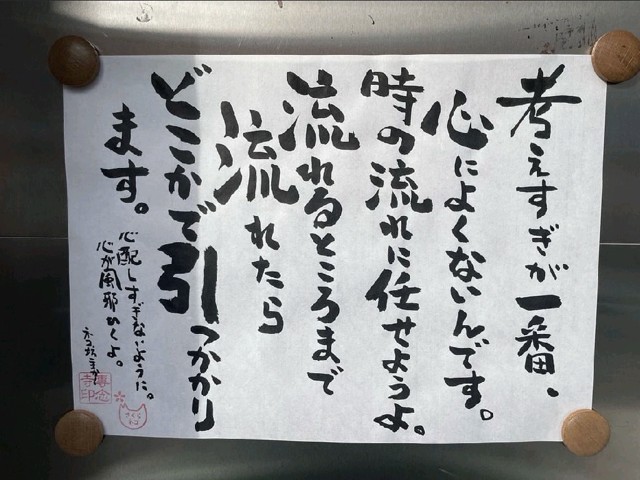 考えすぎが一番、
心によくないんです。
時の流れに任せようよ。
流れるところまで
流れたら
どこかで引っかかり
ます。
心配しすぎないように。
心が風邪ひくよ。
ネコ坊主
専念
寺印
さくら
ねこ